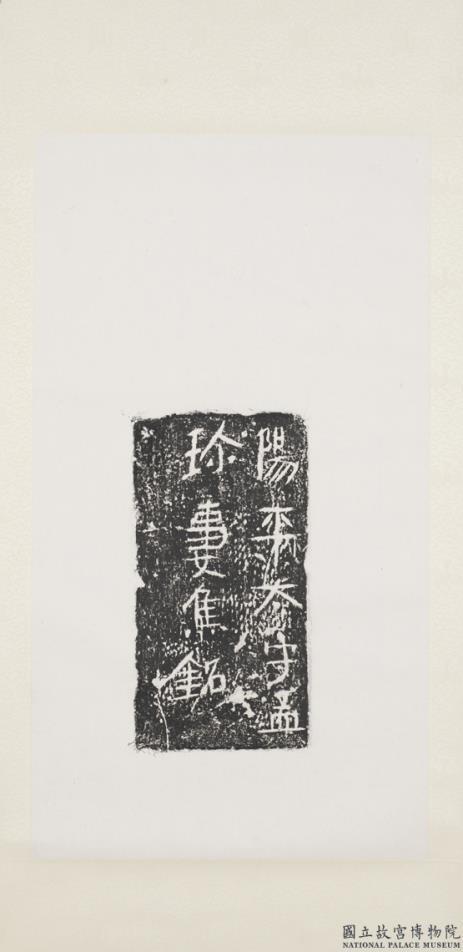 陽平太守孟
珎妻焦銘
國立故宮博物院
NATIONAL PALACE MUSEUM